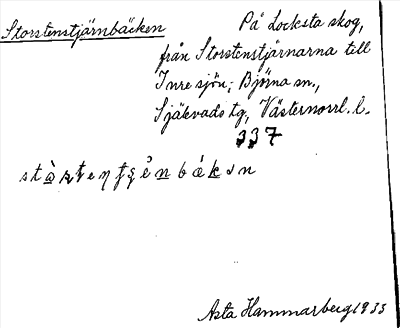 Storstenstjärnbäcken
På Locksta skog,
från Storstenstjärnarna till
Inre sjön; Björna sn,
Själevads tg, Västernorrl. l.
337
Asta Hammarberg 1933